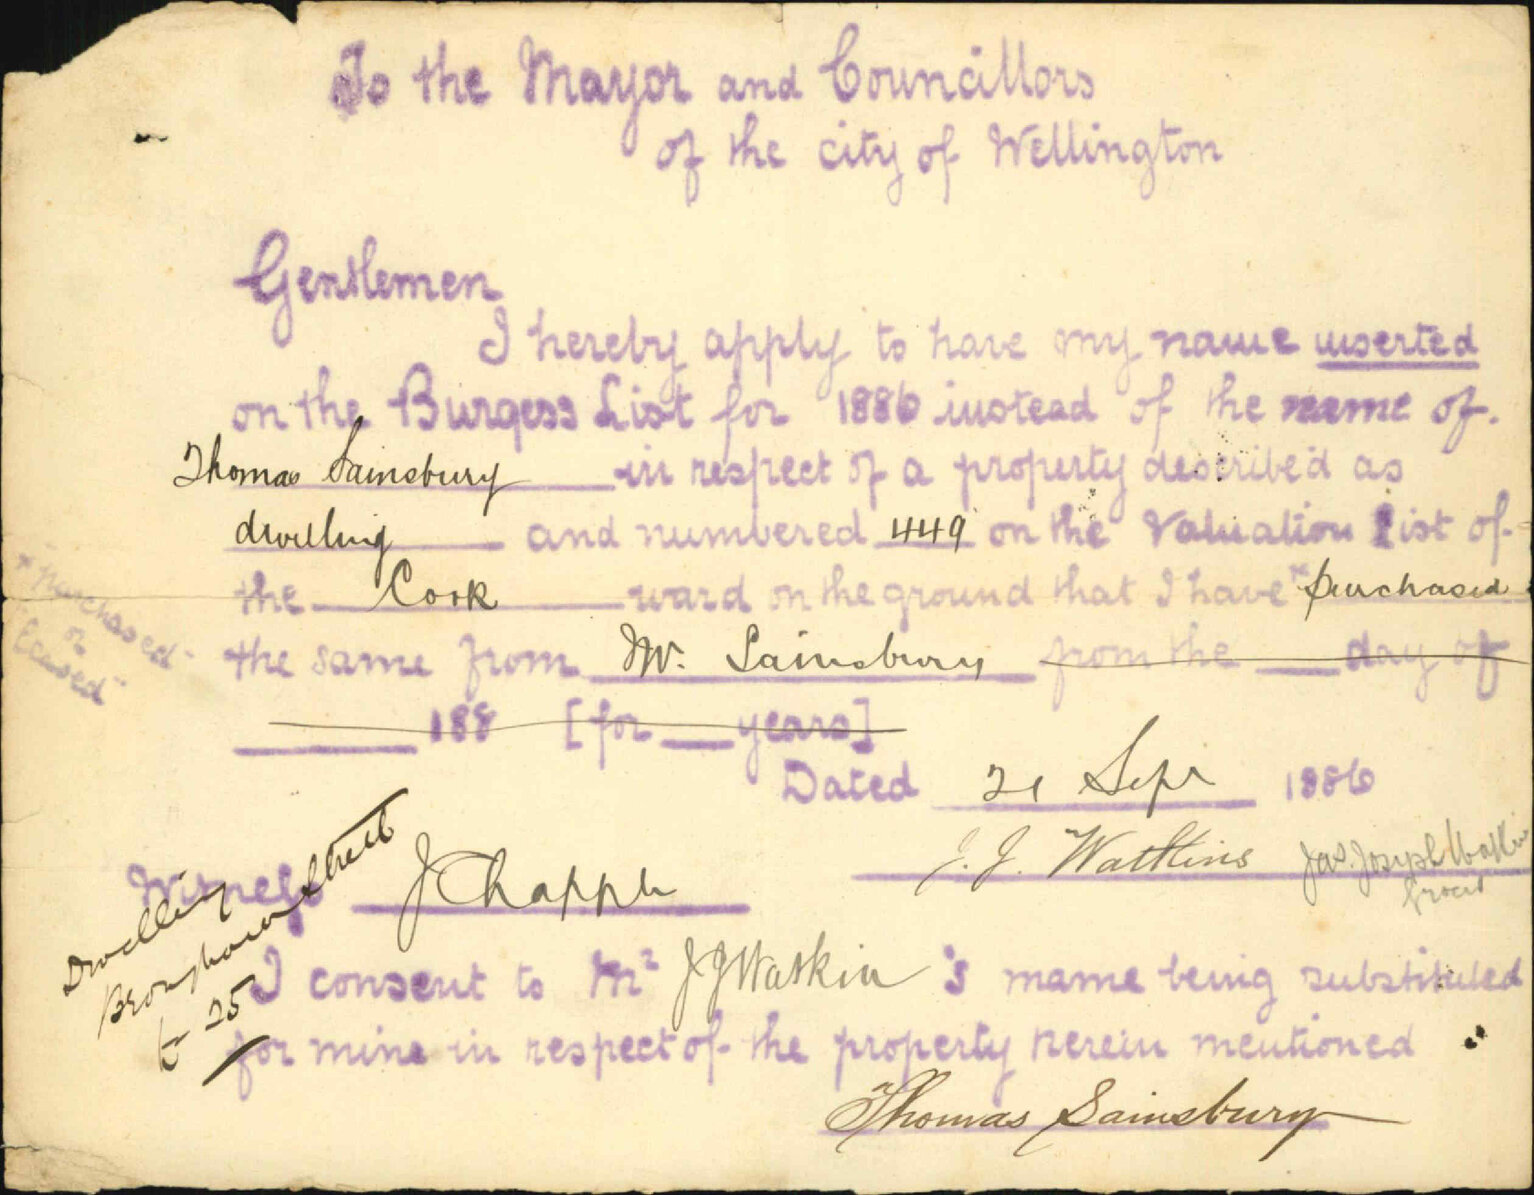 To the Mayor and Councillors
of the city of Wellington
Gentlemen
I hereby apply to have my name inserted
on the Burgess List for 1886 instead of the name of
Thomas Sainsbury in respect of a property described as
dwelling and numbered 449 on the Valuation List of
the Cook ward on the ground that I have purchased
the same from Mr. Sainsbury from the day of
188 [for years]
* "purchased"
or
"leased"
Dated 21 Sepr 1886
J. J. Watkins Jas. Joseph Watkins
Grocer
Witness J Chapple
Dwelling
Brougham Street
25
I consent to Mr J J Watkin 's name being substituted
for mine in respect of the property herein mentioned
Thomas Sainsbury